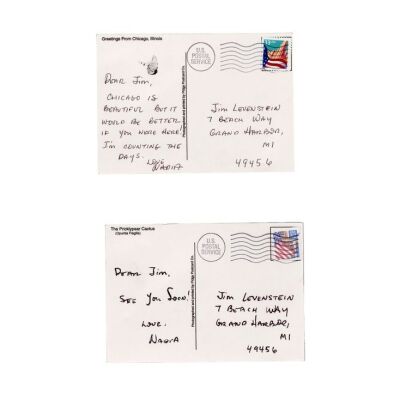 Greetings From Chicago, Illinois
U.S.
POSTAL
SERVICE
DEAR JIM,
CHICAGO IS
BEAUTIFUL BUT IT
WOULD BE BETTER
IF YOU WERE HERE!
I'M COUNTING THE
DAYS.
LOVE
NADIA
JIM LEVENSTEIN
7 BEACH WAY
GRAND HARBOR,
MI
49456
The Pricklypear Cactus
U.S.
POSTAL
SERVICE
DEAR JIM,
SEE YOU SOON!
LOVE,
NADIA
JIM LEVENSTEIN
7 BEACH WAY
GRAND HARBOR,
MI
49456